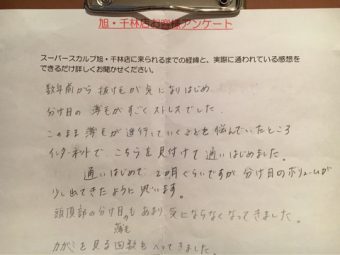 旭・千林店お客様アンケート
スーパースカルプ旭・千林店に来られるまでの経緯と、実際に通われている感想を
できるだけ詳しくお聞かせください。
数年前から 抜け毛が気になりはじめ
分け目の 薄毛がすごくストレスでした。
このまま 薄毛が進行していくことを悩んでいたところ
インターネットで こちらを見付けて 通いはじめました。
通いはじめて 2ヵ月ぐらいですが 分け目のボリュームが
少し出てきたように思います。
頭頂部の分け目の薄毛もあまり気にならなくなってきました。
カガミを見る回数もへってきました。